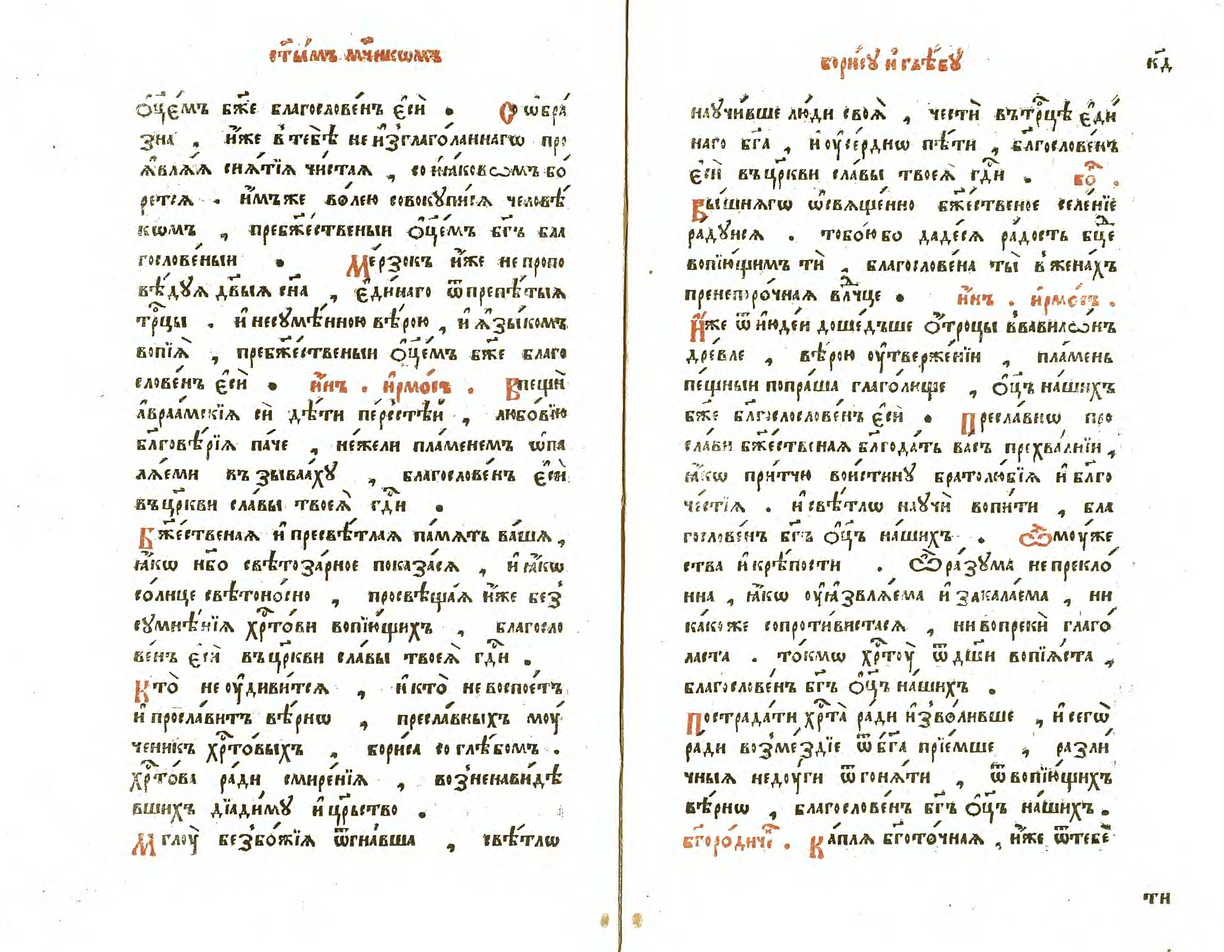 ст҃ы́мъ мч҃нкѡмъ
ѻ҆ц҃е́мъ бж҃е благослове́нъ є҆сѝ . Соѡбра́
зна , и҆́же в тебѣ̀ неизглаго́ланнагѡ про
ѧ҆влѧ́ѧ снѧ́тїѧ чи́стаѧ , со и҆а́ковѡмъ бо́
ретсѧ . и҆́мъже во́лею совокупи́сѧ человѣ́
кѡмъ , пребж҃е́ственыи ѻ҆ц҃е́мъ бг҃ъ бла
гослове́ныи . Ме́рзокъ и҆́же не пропо
вѣ́дуѧ двы́ѧ сн҃а , є҆ди́наго ѿ препѣ́тыѧ
трⷪ҇цы . и҆ несумѣ́нною вѣ́рою , и҆ ѧ҆зы́комъ
вопїѧ̀ , пребж҃е́ственыи ѻ҆ц҃е́мъ бж҃е благо
слове́нъ є҆сѝ . и҆́нъ . и҆рмо́съ . В пещѝ
а҆враа́мскїѧ сѝ дѣ́ти пе́рстѣи , любо́вїю
бл҃говѣ́рїѧ па́че , не́жели пла́менемъ ѡ҆па
лѧ́еми въ зыва́аху , благослове́нъ є҆сѝ
въ цр҃кви сла́вы твоеѧ̀ гдⷭ҇и .
Бж҃е́ственаѧ и҆ пресвѣ́тлаѧ па́мѧть ва́ша ,
ꙗ҆́кѡ нб҃о свѣтоза́рное показа́сѧ , и҆ ꙗ҆́кѡ
со́лнце свѣтоно́сно , просвѣща́ѧ и҆́же без̾
сумнѣ́нїѧ хрⷭ҇то́ви вопїю́щихъ , благосло
ве́нъ є҆сѝ въ цр҃кви сла́вы твоеѧ̀ гдⷭ҇и .
Кто̀ не оу҆диви́тсѧ , и҆ кто̀ не воспое́тъ
и҆ просла́витъ вѣ́рнѡ , пресла́вныхъ моу́
ченикъ хрⷭ҇то́выхъ , бори́са со глѣ́бомъ .
хрⷭ҇то́ва ра́ди смире́нїѧ , воз̾ненави́дѣ
вшихъ дїади́му и҆ црⷭ҇ьство .
Мглоу̀ без̾бо́жїѧ ѿгна́вша , свѣ́тлѡ
бори́су и҆ глѣ́бу
к҃д
научи́вше лю́ди своѧ̀ , че́сти въ трⷪ҇цѣ є҆ди́
наго бг҃а , и҆ оу҆се́рднѡ пѣ́ти , бл҃гослове́нъ
є҆сѝ въ цр҃кви сла́вы твоеѧ̀ гдⷭ҇и . боⷢ҇ .
Вы́шнѧгѡ ѡ҆свѧще́нно бж҃е́ственое селе́нїе
ра́дуисѧ . тобо́ю бо даде́сѧ ра́дость бцⷣе
вопїю́щимъ тѝ , благослове́на ты̀ в жена́хъ
пренепоро́чнаѧ влⷣчце . и҆́нъ . и҆рмо́съ .
И҆̀же ѿ и҆юде́и доше́дъше ѻ҆́троцы в вавилѡ́нъ
дре́вле , вѣ́рою оу҆твержені́и , пла́мень
пе́щныи попра́ша глаго́лище , ѻ҆ц҃ъ на́шихъ
бж҃е бл҃гослослове́нъ є҆сѝ . Пресла́внѡ про
сла́ви бж҃е́ственаѧ бл҃года́ть ва́съ прехва́лнїи ,
ꙗ҆́кѡ при́тчю вои́стину братолю́бїѧ и҆ бл҃го
че́стїѧ . и҆ свѣ́тлѡ научѝ вопи́ти , бла
гослове́нъ бг҃ъ ѻ҆ц҃ъ на́шихъ . Ѿ моу́же
ства и҆ крѣ́пости . Ѿ ра́зума не прекло́
нна , ꙗ҆́кѡ оу҆ꙗ҆звлѧ́ема и҆ закала́ема , ни
ка́коже сопроти́вистасѧ , ни вопрекѝ глаго́
ласта . то́кмѡ хрⷭ҇тоу̀ ѿ дш҃и вопїѧ́ста ,
благослове́нъ бг҃ъ ѻ҆ц҃ъ на́шихъ .
Пострада́ти хрⷭ҇та̀ ра́ди и҆з̾во́ливше , и҆ сегѡ̀
ра́ди возме́здїе ѿ бг҃а прїе́мше , разли́
чныѧ недоу́ги ѿгонѧ́ти , ѿ вопїю́щихъ
вѣ́рнѡ , благослове́нъ бг҃ъ ѻ҆ц҃ъ на́шихъ .
бг҃оро́диче́нъ . Ка́плѧ бг҃ото́чнаѧ , и҆́же ѿ тебѐ
ти